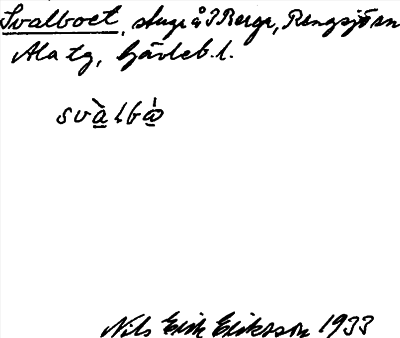 Svalboet, stuga å I Berge, Rengsjö sn
Ala tg, Gävleb. l.
svàlbó
Nils Erik Eriksson 1933